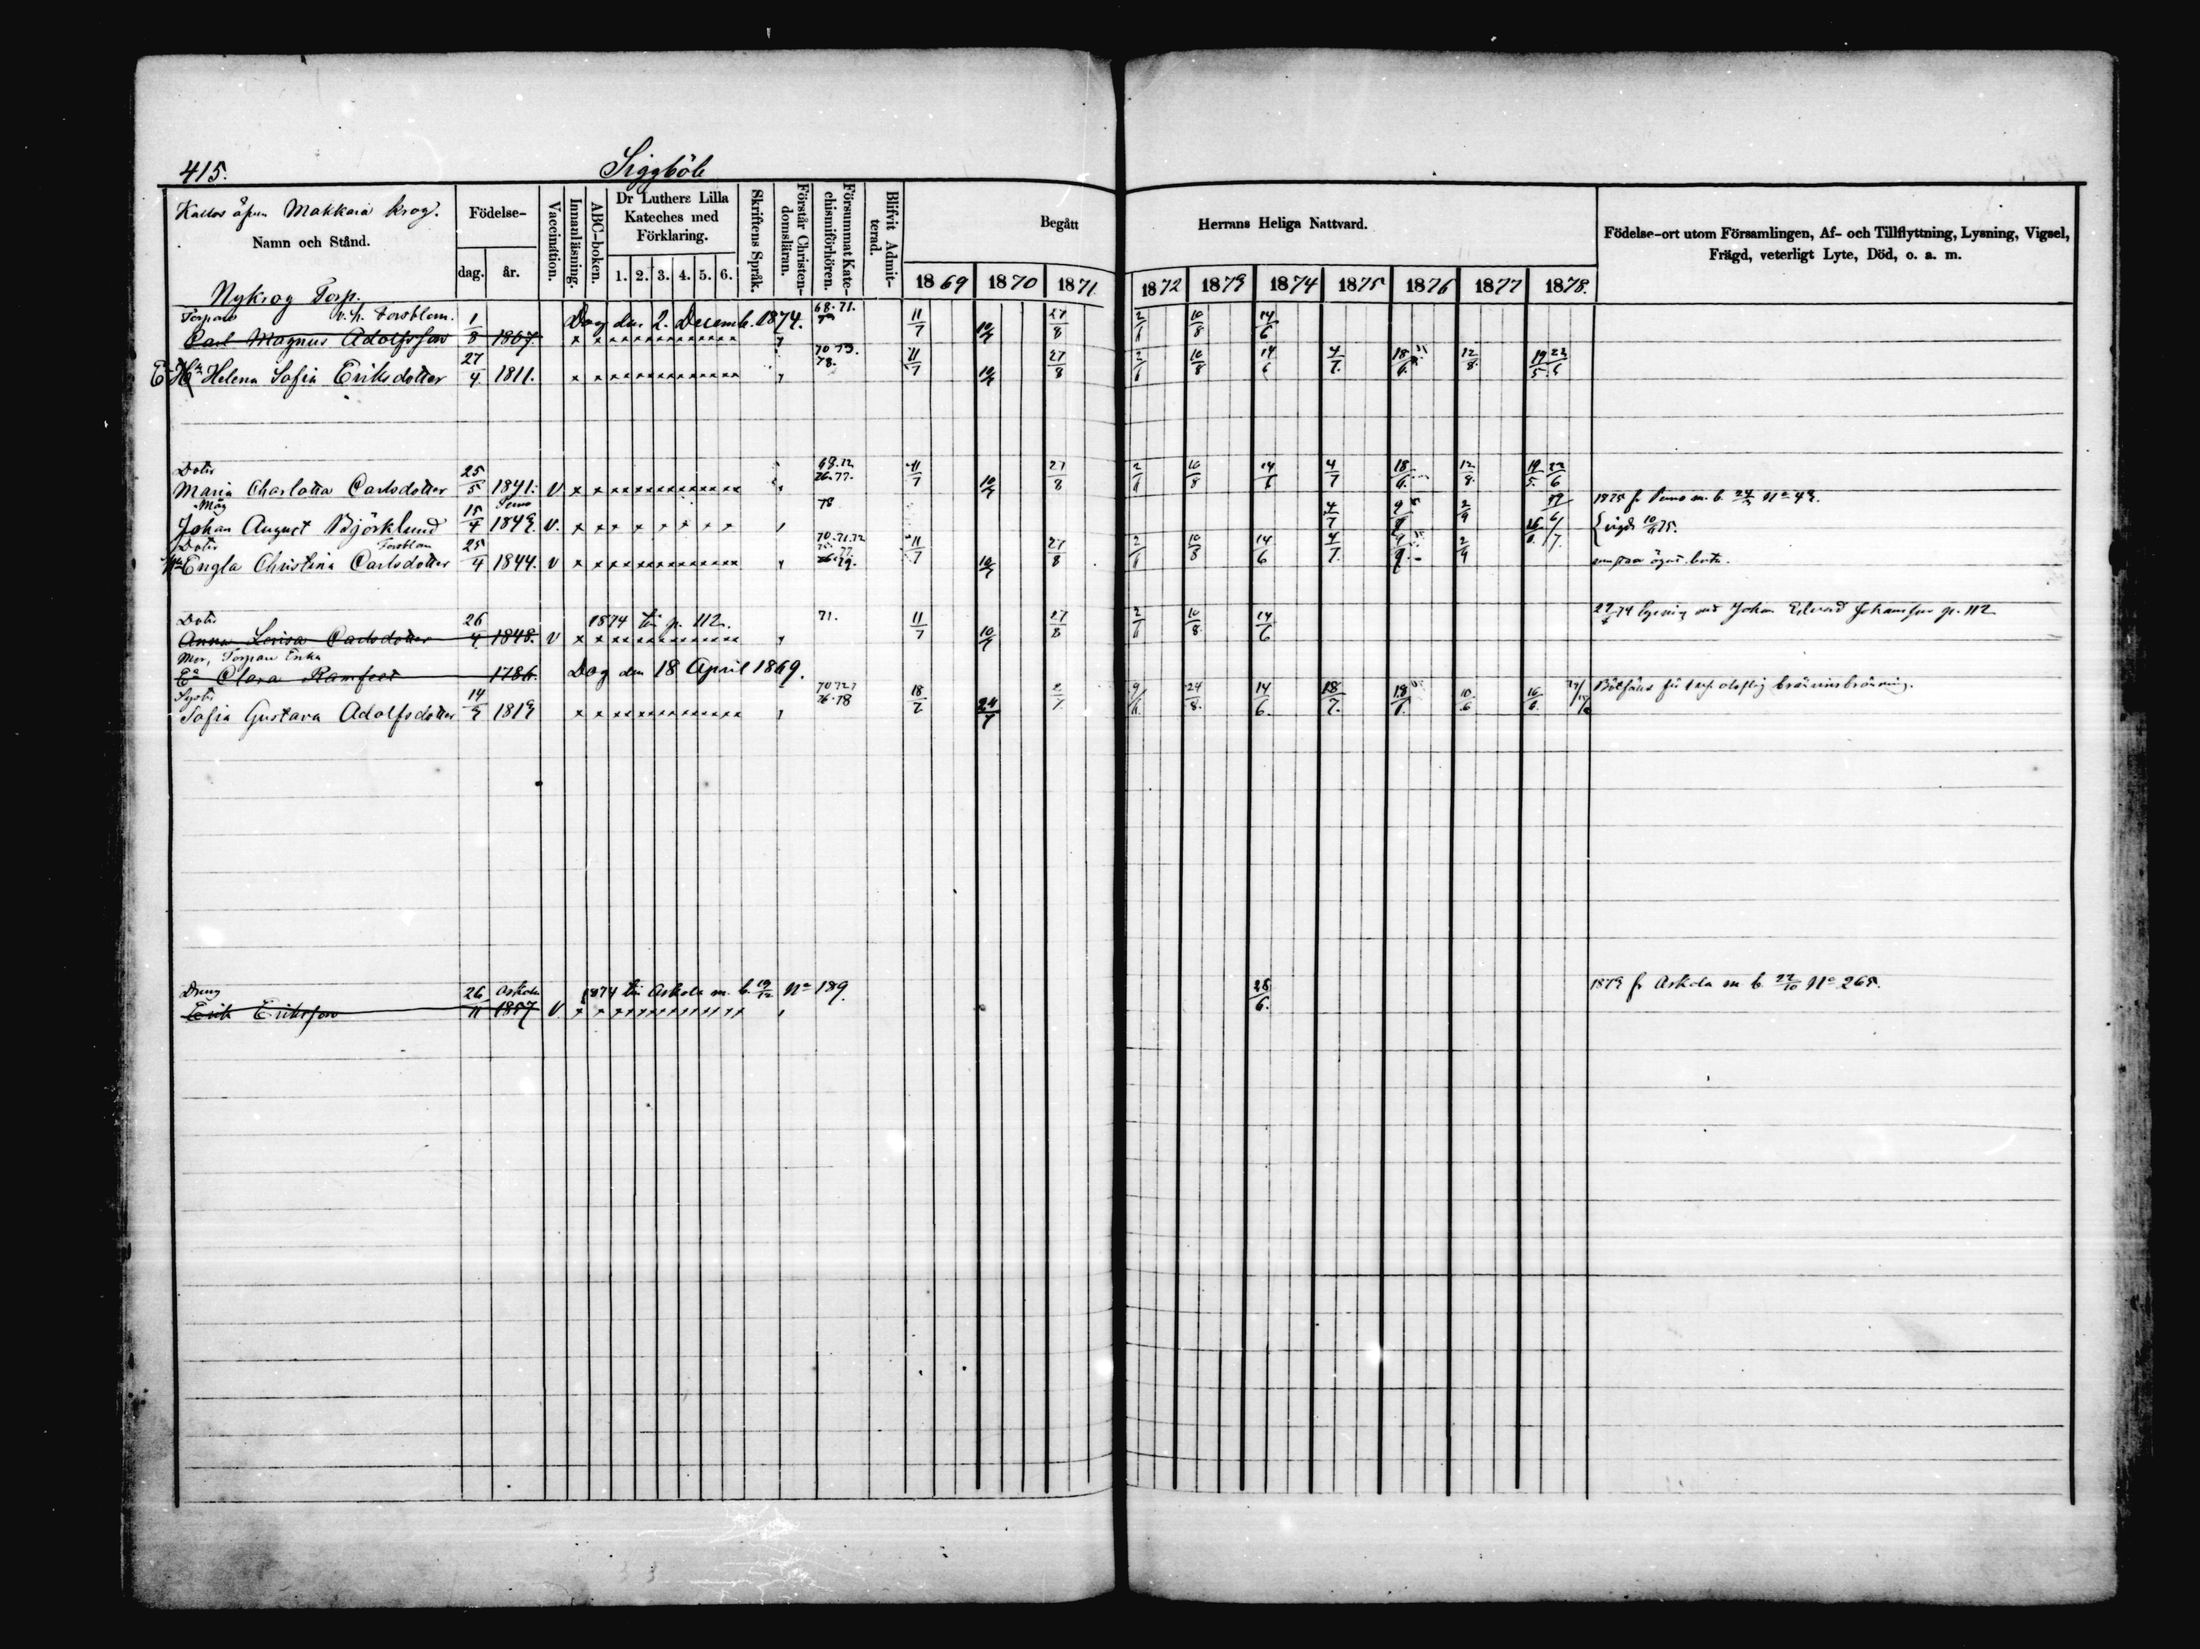 415. Siggböle
Kallas åfven Makkara krog.
Namn och Stånd.
Födelse-
dag. år.
Vaccination.
Innanläsning.
ABC-boken.
Dr Luthers Lilla
Kateches med
Förklaring.
1. 2. 3. 4. 5. 6.
Skriftens Språk.
Förstår Christen-
domsläran.
Försummat Kate-
chismiförhören.
Blifvit Admit-
terad.
Begått Herrans Heliga Nattvard.
1869 1870 1871. 1872 1873 1874 1875 1876 1877 1878.
Födelse-ort utom Församlingen, Af- och Tillflyttning, Lysning, Vigsel,
Frägd, veterligt Lyte, Död, o. a. m.
Nykrog Torp.
Torpare Forsblom. 1/8 Dog den 2. Decemb. 1874. 68. 71. 11/7 10/7 27/8 2/6 10/8 14/6
Carl Magnus Adolfsson 1807.
Ea Helena Sofia Eriksdotter 27/4 1811. 70 73. 78. 11/7 10/7 27/8 2/6 10/8 14/6 4/7. 18/6. 12/8. 19/5. 22/6
Dotter 25/5 68. 72 11/7 10/7 27/8 2/6 10/8 14/6 4/7 18/6. 12/8. 19/5. 22/6
Maria Charlotta Carlsdotter 1841. V 76. 77.
Måg 15/4 Perno 78 4/7 2/9 1875 fr Perno m. b. No 43.
Johan August Björklund 1849. V. vigde 10/6 75.
Dotter Forsblom 25/4 70. 71. 72 11/7 10/7 27/8 2/6 10/8 14/6 4/7. 2/9
Engla Christina Carlsdotter 1844. V 77. 79.
Dotter 26/4 1874 till p. 112. 71. 11/7 10/7 27/8 2/6 10/8 14/6 74 lysning med Johan Edvard Johansson p. 112
Anna Lovisa Carlsdotter 1848. V
Mor, Torpare Enka
Ea Clara Ramfeet 1786. Dog den 18 April 1869.
Syster 14/9 76. 78 18/7 24/7 2/7 9/6. 24/8. 14/6. 18/7. 18/6. 10/6 16/6.
Sofia Gustava Adolfsdotter 1819 Bötfälld för olaglig bränvinsbränning.
Dreng 26/11 Askola 1874 till Askola m. b. 19/12 No 189. 28/6. 1873 fr Askola m b 22/10 No 265.
Erik Eriksson 1857 V.